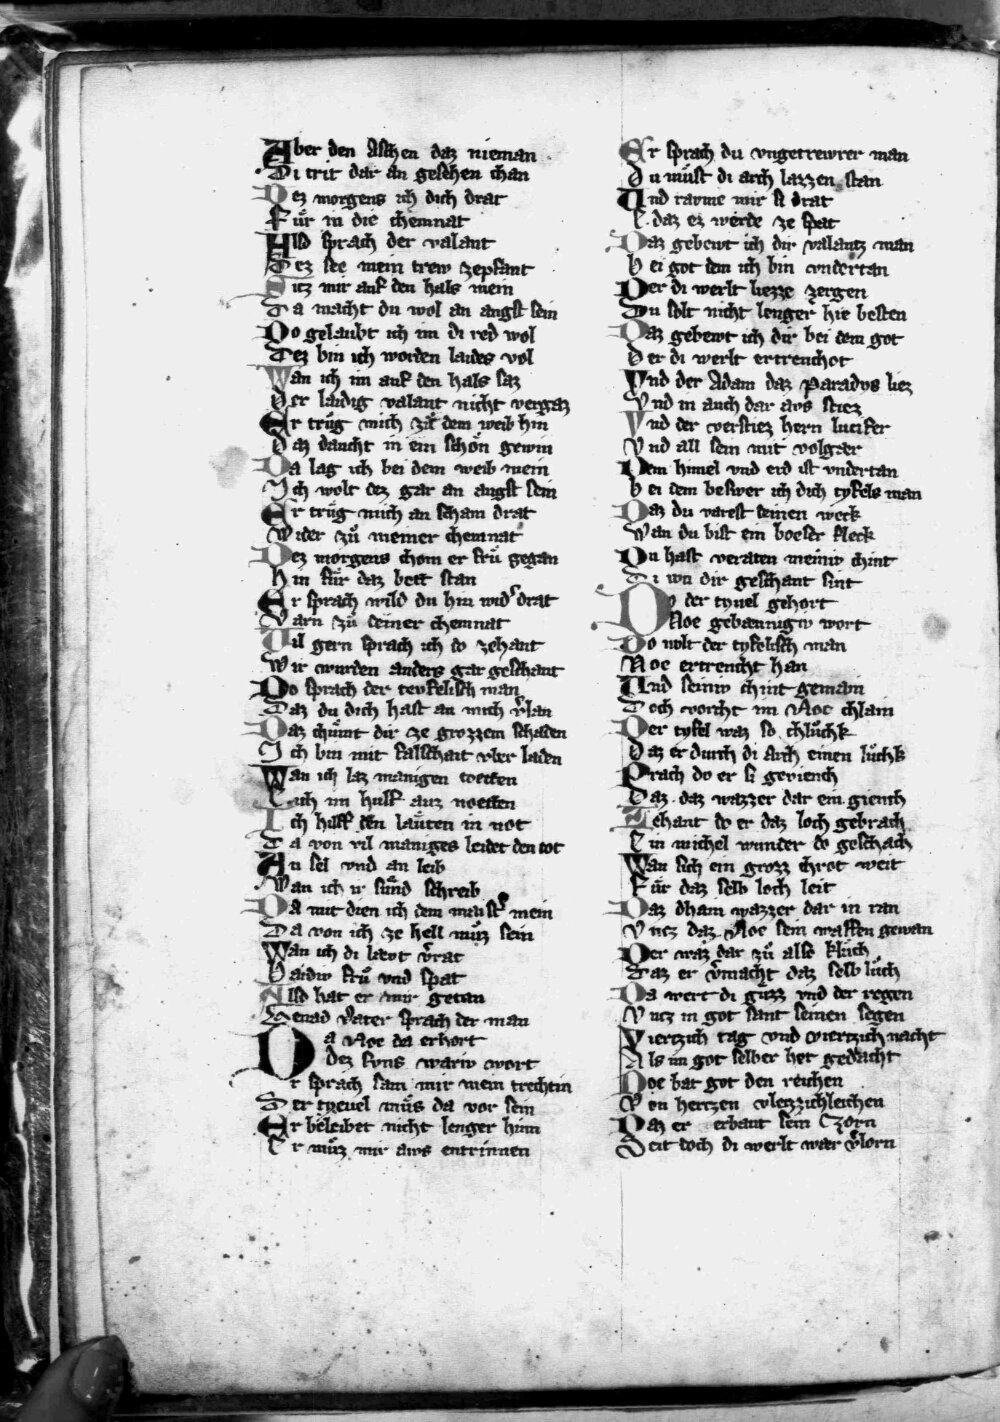 Aber den Aschen daz nieman
Di trit dar an gesehen chan
Dez morgens ich dich drat
Fuͤr in die chemnat
Also sprach der valant
Dez see mein trew zepfant
Sitz mir auf den hals mein
Da macht du wol an angst sein
Do gelaubt ich im di red wol
Dez bin ich worden laides vol
Wan ich im auf den hals saz
Der laidig valant nicht vergaz
Er truͤg mich zuͤ dem weib hin
Daz daucht in ein schoͤn gewin
Da lag ich bei dem weib mein
Ich wolt dez gar an angst sein
Er truͤg mich an scham drat
Wider zuͤ meiner chemnat
Dez morgens chom er fruͤ gegan
Hin fuͤr daz bett stan
Er sprach wild du hin wider drat
Varn zuͤ deiner chemnat
Vil gern sprach ich do zehant
Wir wurden anders gar geschant
Do sprach der teufelisch man
Daz du dich hast an mich v̄lan
Daz chuͤmt dir ze grozzem schaden
Ich bin mit falschait vber laden
Wan ich laz manigen toetten
Ein im hulf auz noetten
Ich hilf den laͤuten in not
Da von vil maniges leidet den tot
An sel vnd an leib
Wan ich ir suͤnd schreib
Da mit dien ich dem maister mein
Da von ich ze hell muͤz sein
Wan ich di laewt v̄rat
Baidiv fruͤ vnd spat
Also hat er mir getan
Genad vater sprach der man
Da Noe da erhort
Dez suns wariv wort
Er sprach sam mir mein trechtin
Der tyeuel muͤs da vor sein
Er beleibet nicht lenger hinn
Er muͤz mir aws entrinnen
Er sprach du vngetrewrer man
Du muͤst di arch lazzen stan
Und ravme mir si drat
E daz ez werde ze spat
Daz gebewt ich dir valantz man
Bei got dem ich bin vndertan
Der di werlt liezze zergen
Du solt nicht lenger hie besten
Daz gebewt ich dir bei dem got
Der di werlt ertrenchot
Vnd der Adam daz Paradys liez
Vnd in auch dar avs stiez
Vnd der verstiez hern lucifer
Vnd all sein mit volgaer
Dem himel vnd erd ist vndertan
Bei dem beswer ich dich tyfels man
Daz du varest deinen weck
Wan du bist ein boeser fleck
Du hast veraten meiniv chint
Di von dir geschant sint
Do der tyuel gehort
Noe gebaennigiv wort
Do wolt der tyfelisch man
Noe ertrencht han
Und seiniv chint gemain
Doch vorcht im Noe chlain
Der tyfel waz so chluͤchk
Daz er durch di arch einen luͤchk
Prach do er si geviench
Daz daz wazzer dar ein giench
Zehant do er daz loch gebrach
Ein michel wunder do geschach
Wan sich ein grozz chrot weit
Fuͤr daz selb loch leit
Daz dhain wazzer dar in ran
Vntz daz Noe sein waffen gewan
Der waz dar zuͤ also kluͤch
Daz er v̄macht daz selb luͤch
Da wert di guͤzz vnd der regen
Vntz in got sant seinen segen
Viertzich tag vnd viertzich nacht
Als im got selber het gedacht
Noe bat got den reichen
Von hertzen vleizzichleichen
Daz er erbant sein Czorn
Seit doch di werlt waer v̄lorn